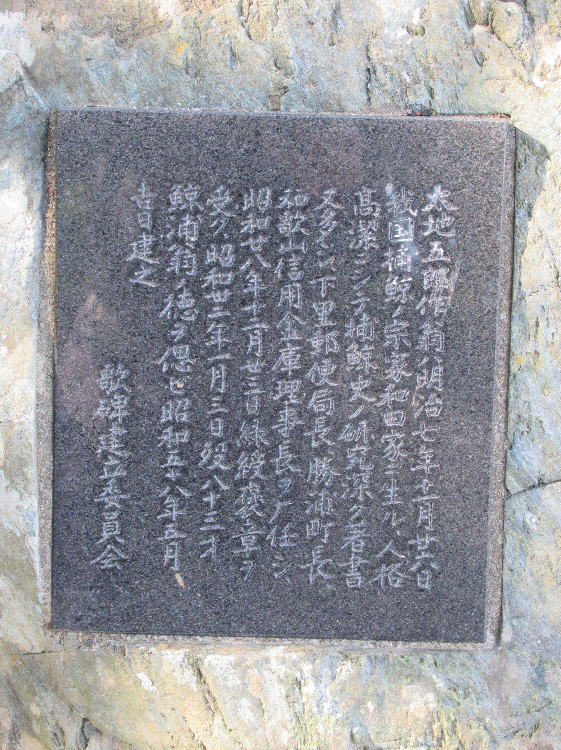 太地五郎作翁ハ明治七年十一月廿六日
戦国捕鯨ノ宗家和田家ニ生ル、人格
高潔ニシテ捕鯨史ノ研究深ク著書
又多シ、下里郵便局長、勝浦町長
和歌山信用金庫理事長ヲ歴任シ、
昭和廿八年十一月廿三日緑綬褒章ヲ
受ク、昭和廿二年一月三日歿八十三才
鯨浦翁ノ徳ヲ偲ビ昭和五十八年五月
吉日建之
歌碑建立委員会